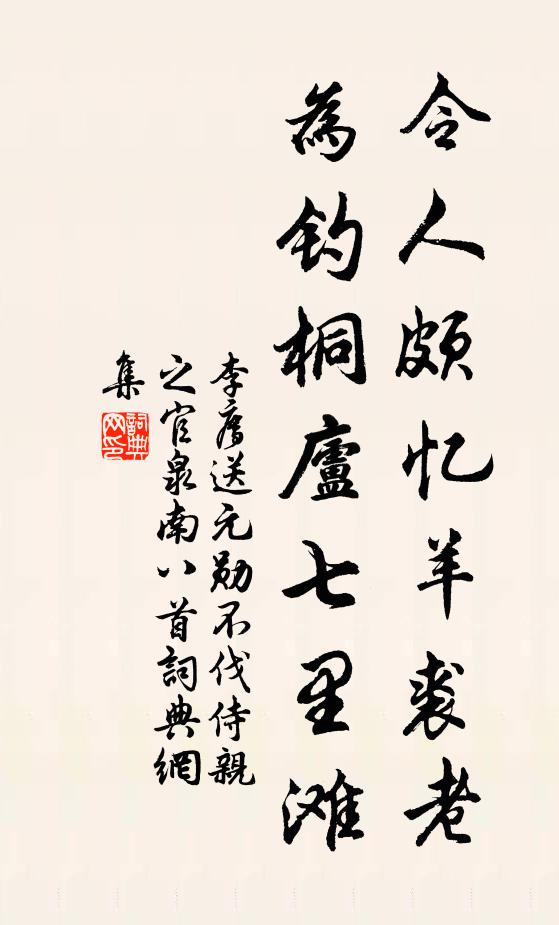 令人頗忆羊裘老
為钓桐廬七里滩
李廌送元勋不伐侍親
之官泉南八首詞典網
集
詞典網印